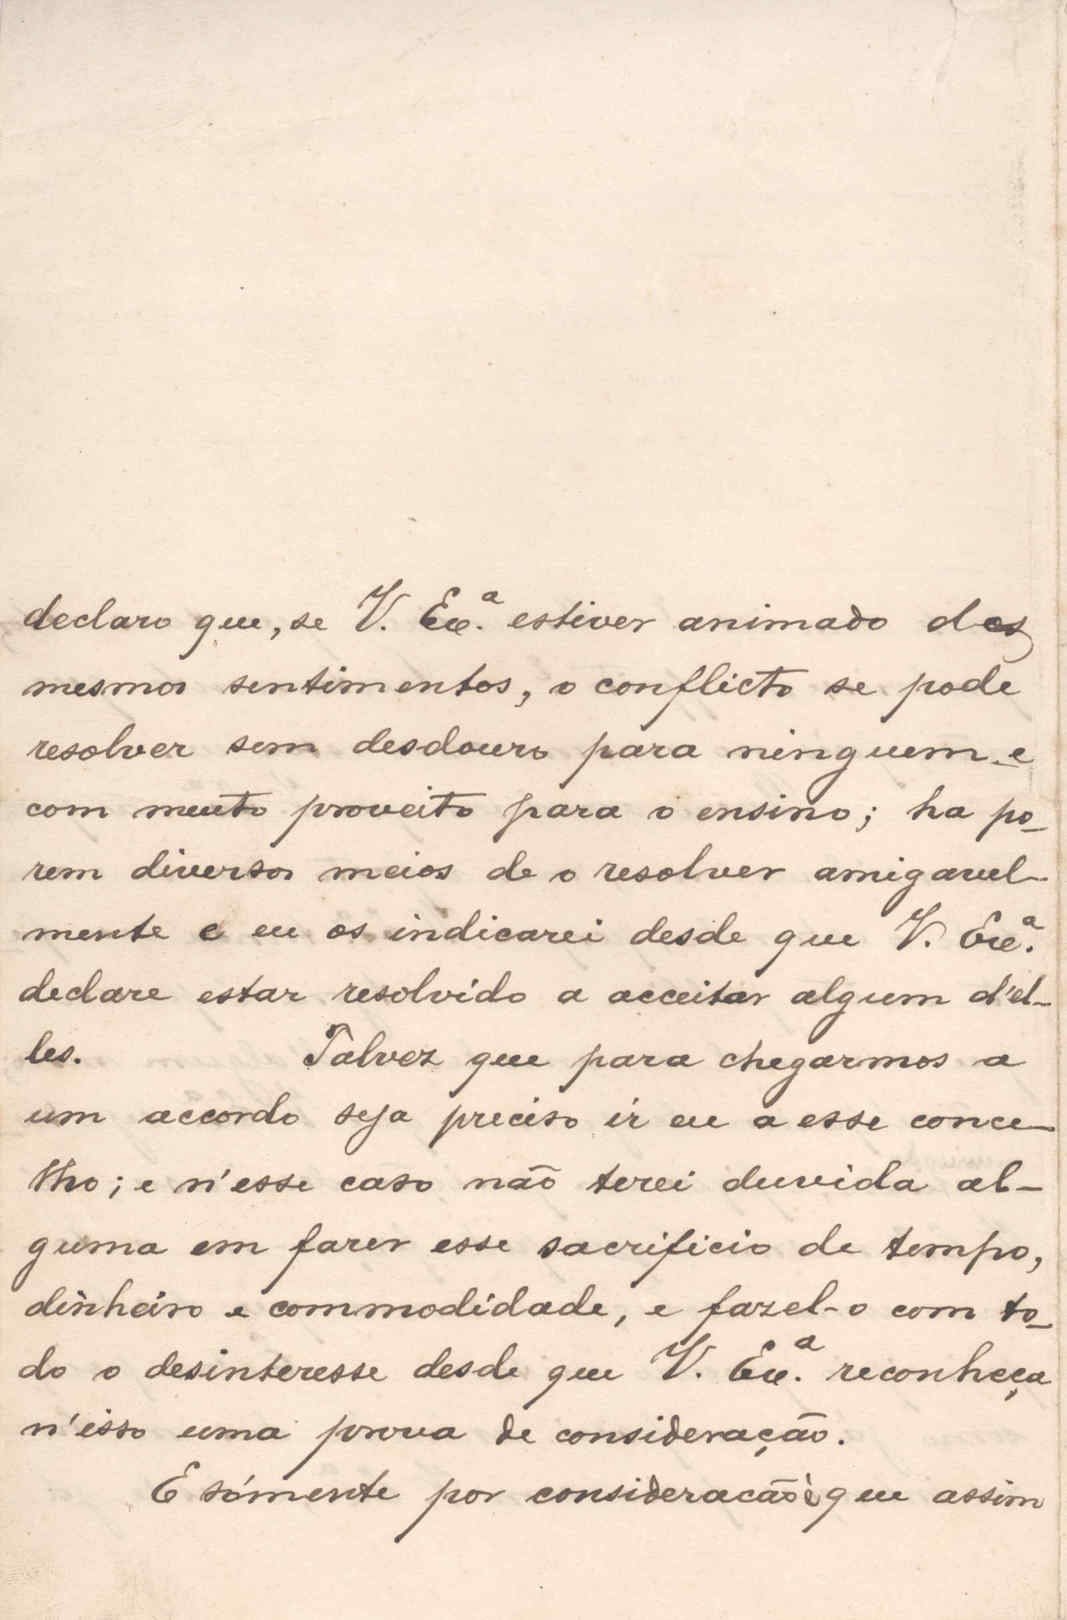 declaro que, se V. Ex.ª estiver animado dos
mesmos sentimentos, o conflicto se pode
resolver sem desdouro para ninguem e
com muito proveito para o ensino; ha po-
rem diversos meios de o resolver amigavel-
mente e eu os indicarei desde que V. Exª.
declare estar resolvido a acceitar algum d'el-
les. Talvez que para chegarmos a
um accordo seja preciso ir eu a esse conce-
lho; e n'esse caso não terei duvida al-
guma em fazer esse sacrificio de tempo,
dinheiro e commodidade, e fazel-o com to-
do o desinteresse desde que V. Ex.ª reconheça
n'isso uma prova de consideração.
E sómente por consideracão é que assim